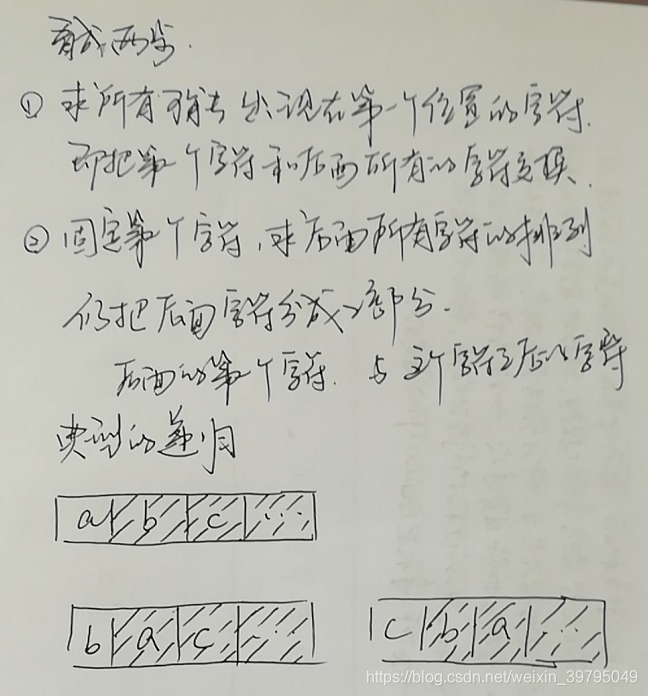 看成两步.
① 求所有可能出现在第一个位置的字符.
即把第一个字符和后面所有的字符交换.
② 固定第一个字符,求后面所有字符的排列
仍把后面字符分成2部分.
后面的第一个字符. 与这个字符之后的字符
典型的递归
a b c ...
b a c ... c b a ...
https://blog.csdn.net/weixin_39795049